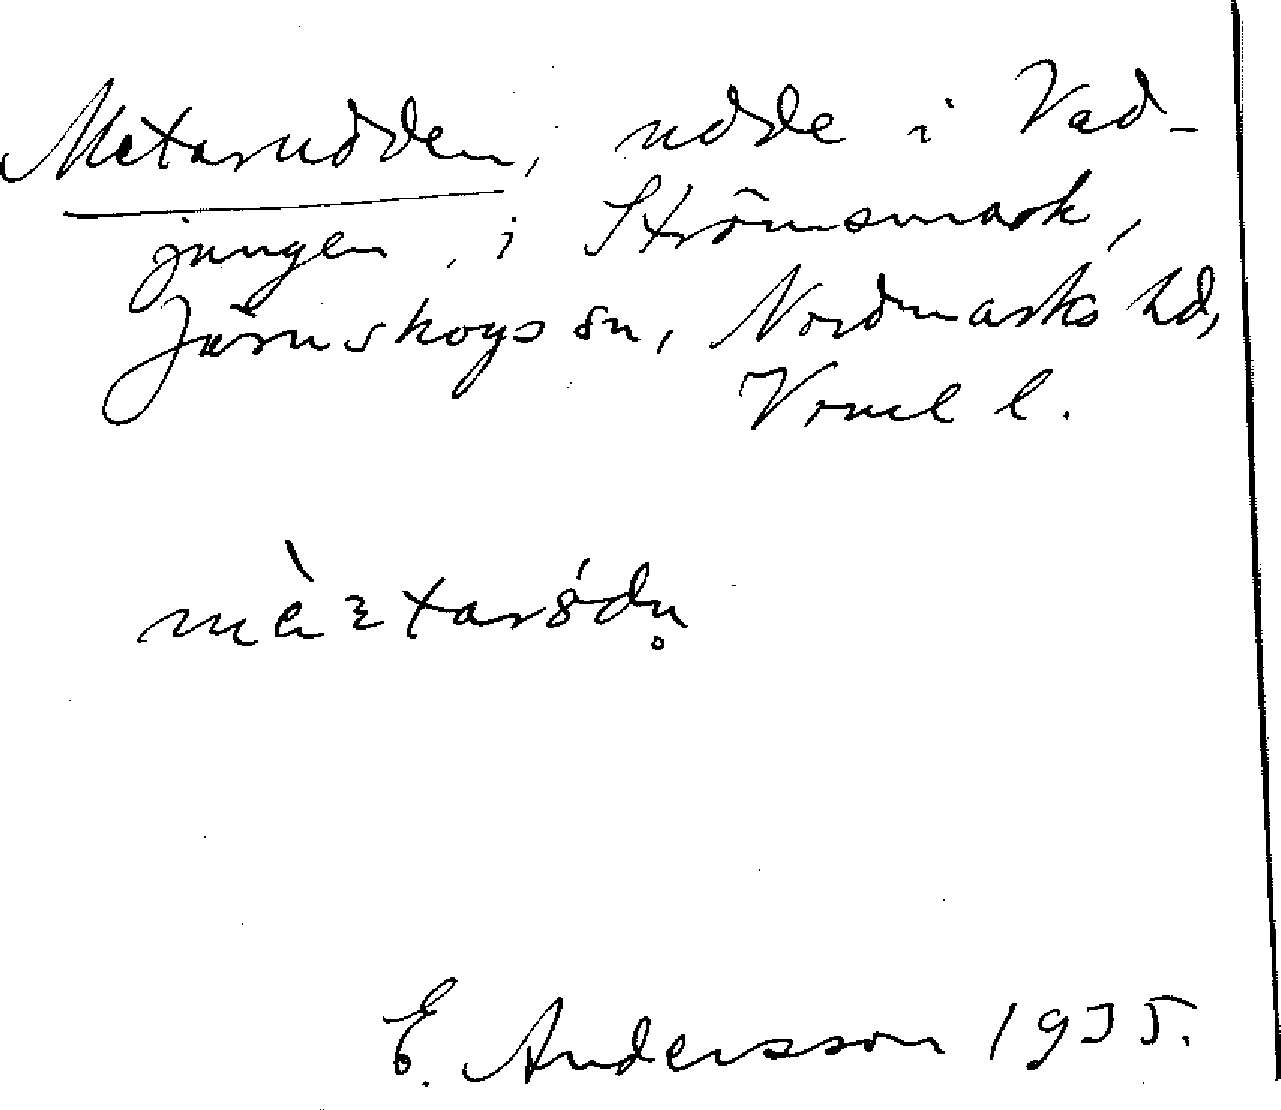 Metarudden, udde i Vad-
jungen, i Strömsmark,
Järnskogs sn, Nordmarks hd,
Vrml l.
E. Andersson 1935.